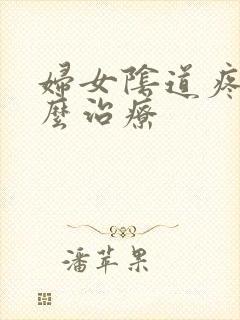 婦女陰道疼
麼治療
潘苹果